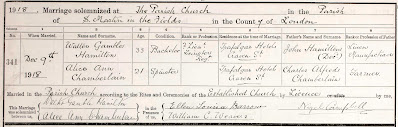 1918. Marriage solemnized at The Parish Church in the Parish
of S. Martin in the Fields in the County of London
No. When Married. Name and Surname. Age. Condition. Rank or Profession. Residence at the time of Marriage. Father's Name and Surname. Rank or Profession of Father.
341 Dec 9th 1918 Walter Gamble Hamilton 33 Bachelor Trafalgar Hotel Craven St John Hamilton (Dec) Linen Manufacturer
Alice Ann Chamberlain 21 Spinster Trafalgar Hotel Craven St Charles Alfred Chamberlain Farmer
Married in the Parish Church according to the Rites and Ceremonies of the Established Church by Licence or by me,
This Marriage was solemnized between us, Walter Gamble Hamilton Alice Ann Chamberlain in the Presence of us, Ellen Louisa Barrow William C. Weaver Nigel Campbell